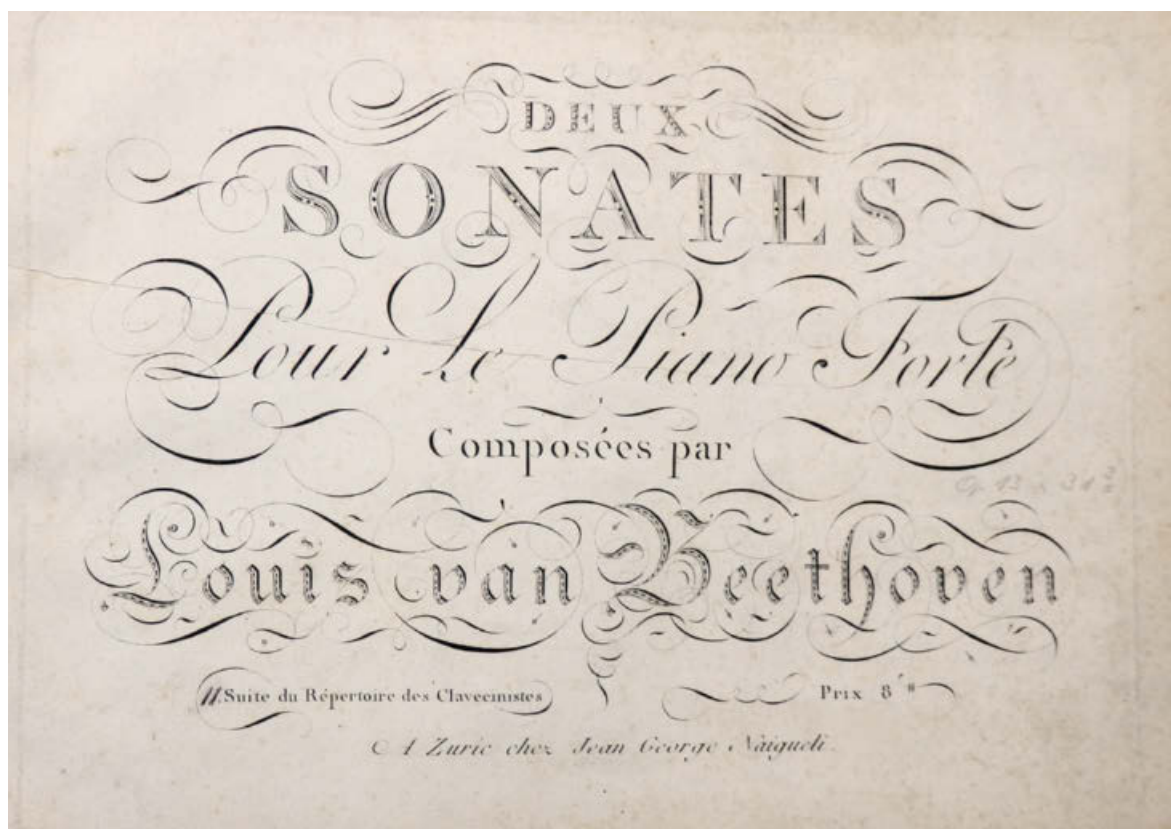 DEUX
SONATES
Pour le Piano Forte
Composées par
Op 13
Louis van Beethoven
11. Suite du Répertoire des Clavecinistes
Prix 8
A Zuric chez Jean George Naigueli.